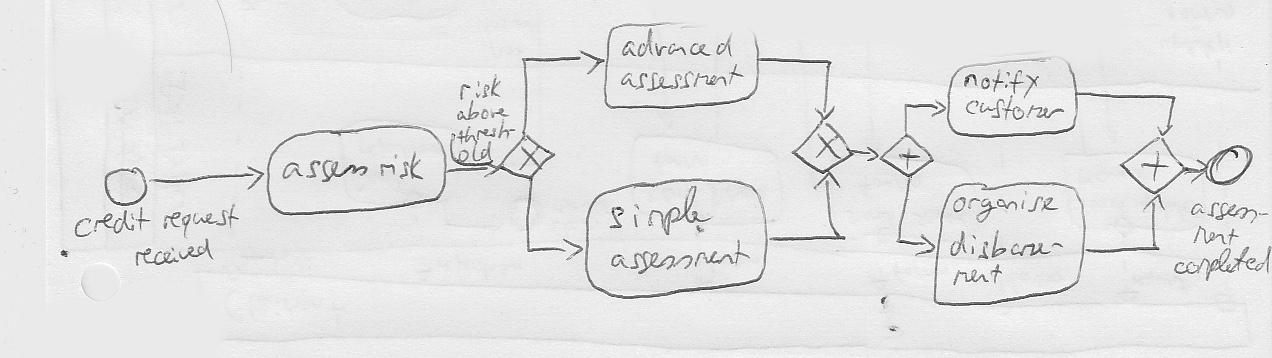 credit request
received
assess risk
risk
above
thresh-
old
advanced
assessment
simple
assessment
notify
customer
organise
disburse-
ment
assess-
ment
completed